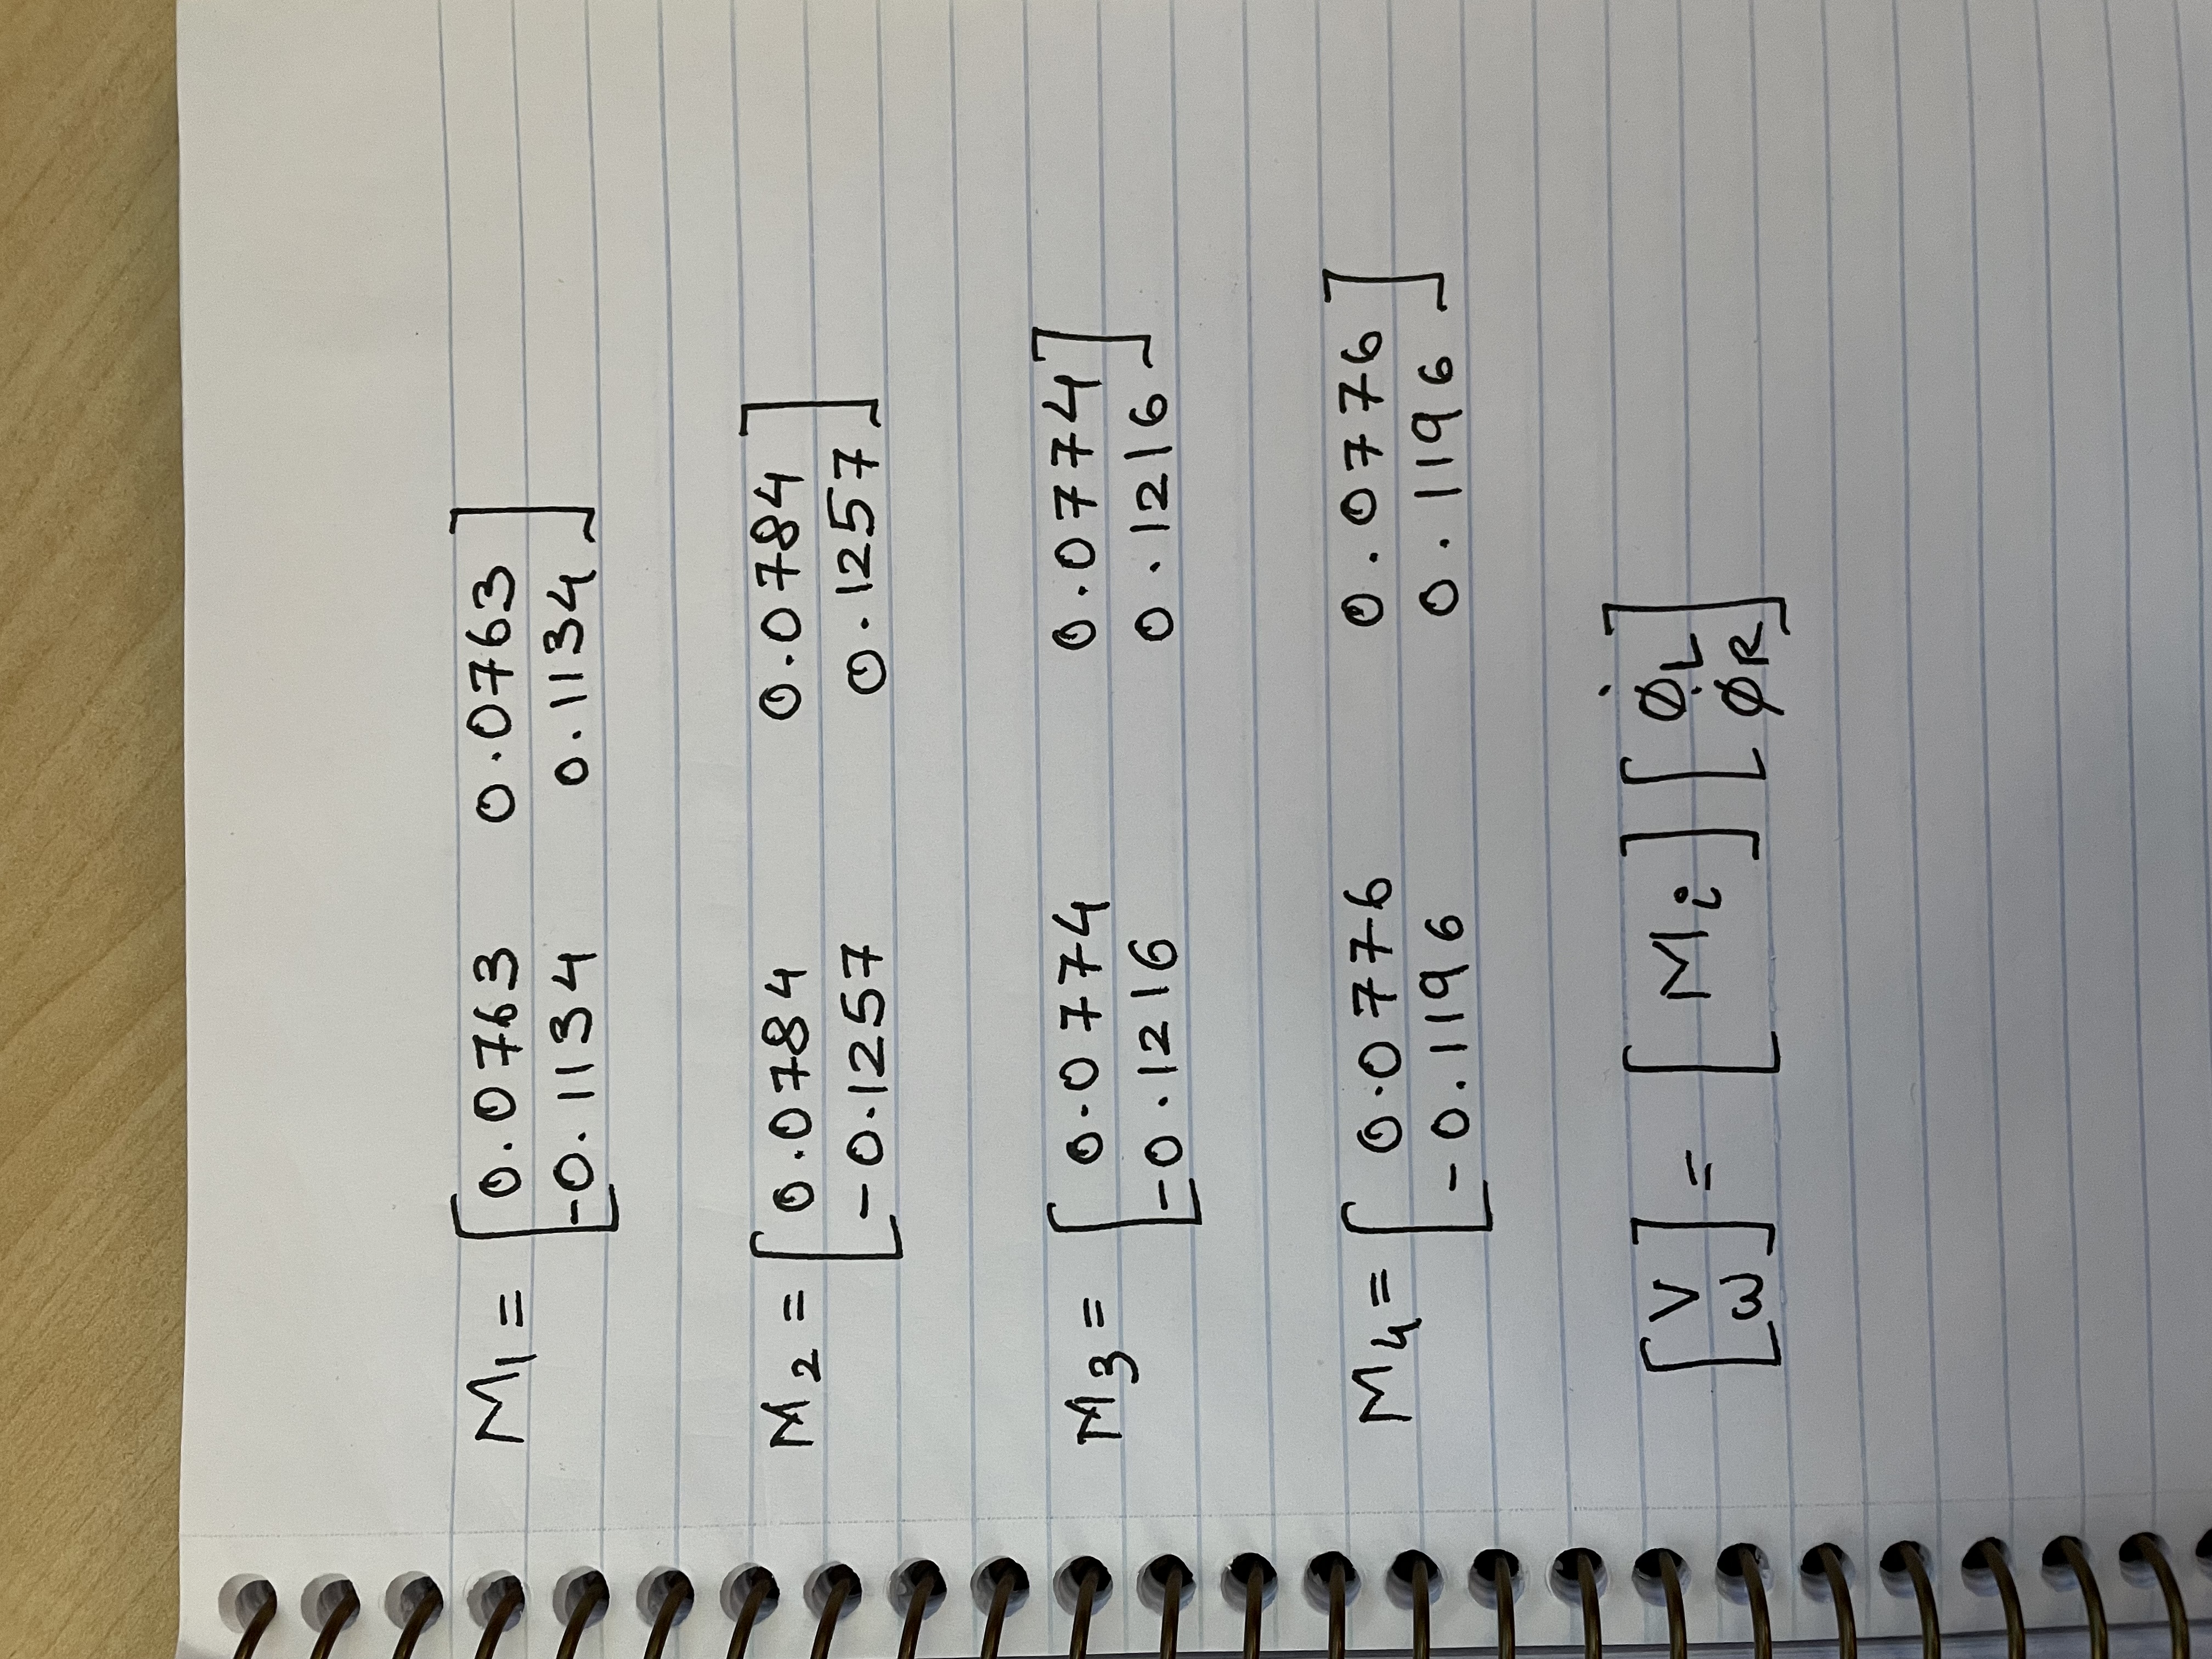 M1 = [ 0.0763 0.0763
-0.1134 0.1134 ]
M2 = [ 0.0784 0.0784
-0.1257 0.1257 ]
M3 = [ 0.0774 0.0774
-0.1216 0.1216 ]
M4 = [ 0.0776 0.0776
-0.1196 0.1196 ]
[ V
ω ] = [ Mi ] [ φ̇L
φ̇R ]